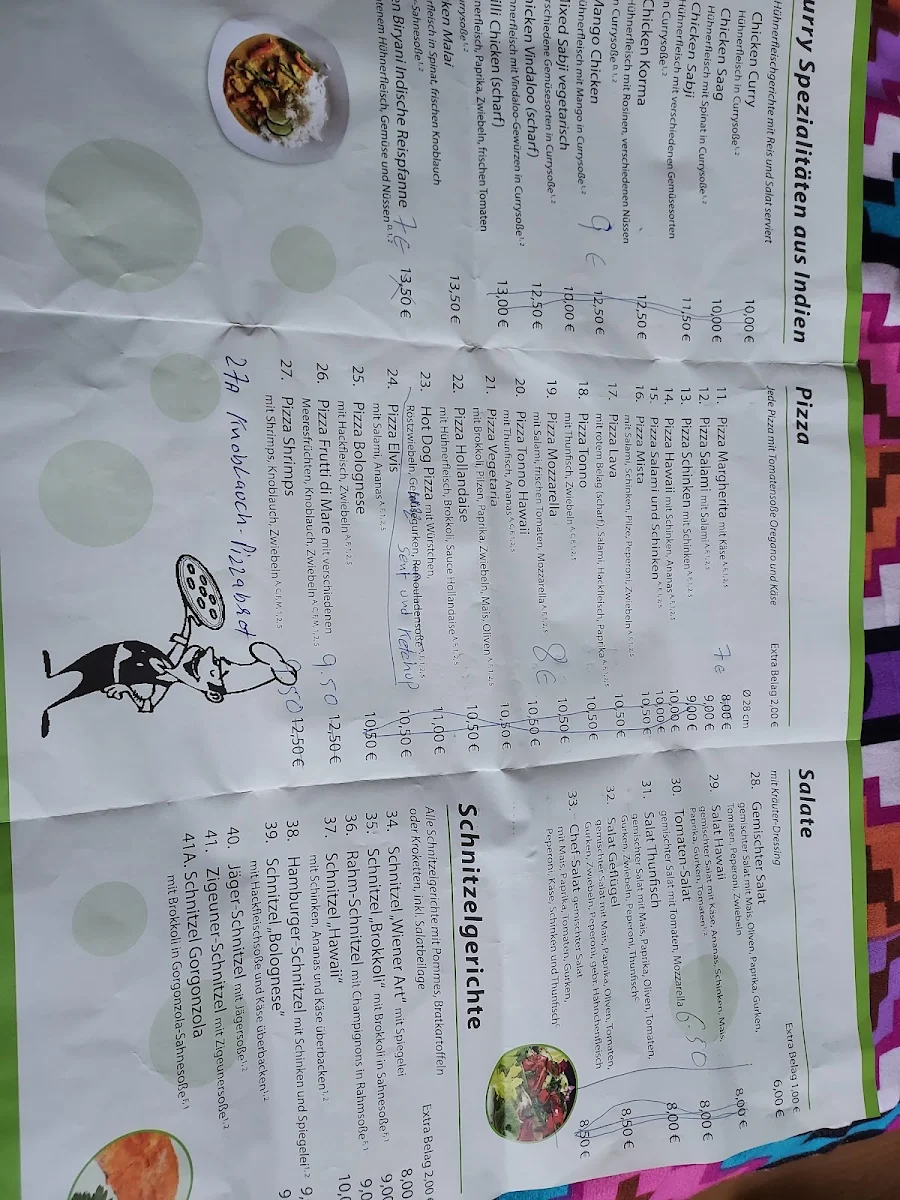 urry Spezialitäten aus Indien
Hühnerfleischgerichte mit Reis und Salat serviert
Chicken Curry 10,00 €
Hühnerfleisch in Currysoße1,2
Chicken Saag 10,00 €
Hühnerfleisch mit Spinat in Currysoße1,2
Chicken Sabji 11,50 €
Hühnerfleisch mit verschiedenen Gemüsesorten
n Currysoße1,2
Chicken Korma 12,50 €
Hühnerfleisch mit Rosinen, verschiedenen Nüssen
n Currysoße
Mango Chicken 12,50 €
ühnerfleisch mit Mango in Currysoße1,2
9 €
ixed Sabji vegetarisch 10,00 €
rschiedene Gemüsesorten in Currysoße1,2
hicken Vindaloo (scharf) 12,50 €
hnerfleisch mit Vindaloo-Gewürzen in Currysoße1,2
illi Chicken (scharf) 13,00 €
nerfleisch, Paprika, Zwiebeln, frischen Tomaten
rrysoße1,2
ken Malai 13,50 €
rfleisch in Spinat, frischen Knoblauch
-Sahnesoße1,2
en Biryani Indische Reispfanne 7€ 13,50 €
tenem Hühnerfleisch, Gemüse und Nüssen
Pizza
Jede Pizza mit Tomatensoße Oregano und Käse
Extra Belag 2,00 €
Ø 28 cm
11. Pizza Margherita mit Käse A,F,1,2,5 8,00 €
7€
12. Pizza Salami mit Salami A,F,1,2,5 9,00 €
13. Pizza Schinken mit Schinken A,F,1,2,5 9,00 €
14. Pizza Hawaii mit Schinken, Ananas A,F,1,2,5 10,00 €
15. Pizza Salami und Schinken A,F,1,2,5 10,00 €
16. Pizza Mista 10,50 €
mit Salami, Schinken, Pilze, Peperoni, Zwiebeln A,F,1,2,5
17. Pizza Lava 10,50 €
mit rotem Belag (scharf), Salami, Hackfleisch, Paprika
18. Pizza Tonno 10,50 €
mit Thunfisch, Zwiebeln A,C,F,1,2,5
19. Pizza Mozzarella 10,50 €
mit Salami, frischen Tomaten, Mozzarella A,F,1,2,5
8.€
20. Pizza Tonno Hawaii 10,50 €
mit Thunfisch, Ananas A,C,F,1,2,5
21. Pizza Vegetaria 10,50 €
mit Brokkoli, Pilzen, Paprika, Zwiebeln, Mais, Oliven A,F,1,2,5
22. Pizza Hollandaise 10,50 €
mit Hühnerfleisch, Brokkoli, Sauce Hollandaise A,F,1,2,5
23. Hot Dog Pizza mit Würstchen, 11,00 €
Röstzwiebeln, Gewürzgurken, Remouladensoße
Senf und Ketchup
24. Pizza Elvis 10,50 €
mit Salami, Ananas A,F,1,2,5
25. Pizza Bolognese 10,50 €
mit Hackfleisch, Zwiebeln A,F,1,2,5
26. Pizza Frutti di Mare mit verschiedenen 9.50 12,50 €
Meeresfrüchten, Knoblauch, Zwiebeln A,C,F,M,1,2,5
27. Pizza Shrimps 9,50 12,50 €
mit Shrimps, Knoblauch, Zwiebeln A,C,F,M,1,2,5
27A Knoblaoch-Pizzabrot
Salate
mit Kräuter-Dressing
Extra Belag 1,00 €
28. Gemischter Salat 6,00 €
gemischter Salat mit Mais, Oliven, Paprika, Gurken,
Tomaten, Peperoni, Zwiebeln
29. Salat Hawaii 8,00 €
gemischter Salat mit Käse, Ananas, Schinken, Mais,
Paprika, Gurken, Tomaten1,2
30. Tomaten-Salat 8,00 €
gemischter Salat mit Tomaten, Mozzarella
6.50
31. Salat Thunfisch 8,00 €
gemischter Salat mit Mais, Paprika, Oliven, Tomaten,
Gurken, Zwiebeln, Peperoni, Thunfisch
32. Salat Geflügel 8,50 €
gemischter Salat mit Mais, Paprika, Oliven, Tomaten,
Gurken, Zwiebeln, Peperoni, gebr. Hähnchenfleisch
33. Chef-Salat gemischter Salat 8,50 €
mit Mais, Paprika, Tomaten, Gurken,
Peperoni, Käse, Schinken und Thunfisch
Schnitzelgerichte
Alle Schnitzelgerichte mit Pommes, Bratkartoffeln
oder Kroketten, inkl. Salatbeilage
Extra Belag 2,00 €
34. Schnitzel „Wiener Art" mit Spiegelei 8,00
35. Schnitzel „Brokkoli" mit Brokkoli in Sahnesoße F,1 9,00
36. Rahm-Schnitzel mit Champignons in Rahmsoße F,1 9,0
37. Schnitzel „Hawaii" 10,0
mit Schinken, Ananas und Käse überbacken1,2
38. Hamburger-Schnitzel mit Schinken und Spiegelei1,2 9,
39. Schnitzel „Bolognese" 9
mit Hackfleischsoße und Käse überbacken1,2
40. Jäger-Schnitzel mit Jägersoße1,2
41. Zigeuner-Schnitzel mit Zigeunersoße1,2
41A. Schnitzel Gorgonzola
mit Brokkoli in Gorgonzola-Sahnesoße F,1